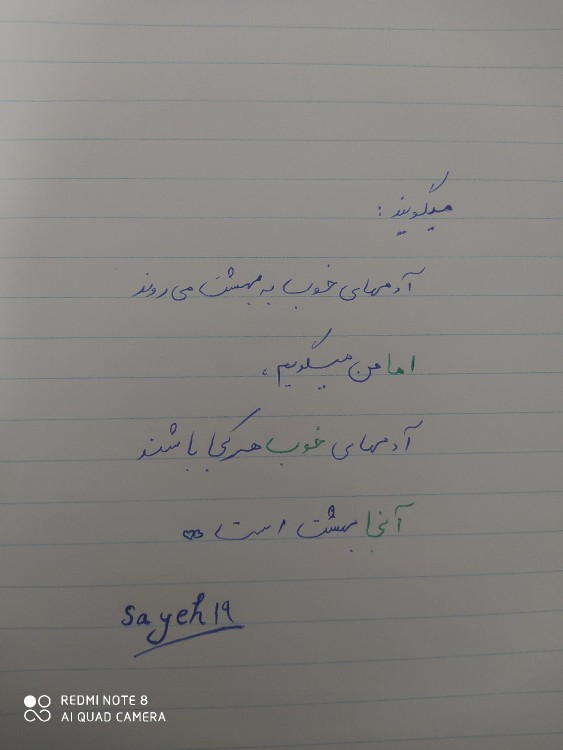 میگویند :
آدمهای خوب به بهشت می روند
اما من میگویم ،
آدمهای خوب هر کجا باشند
آنجا بهشت است
Sayeh 19
REDMI NOTE 8
AI QUAD CAMERA